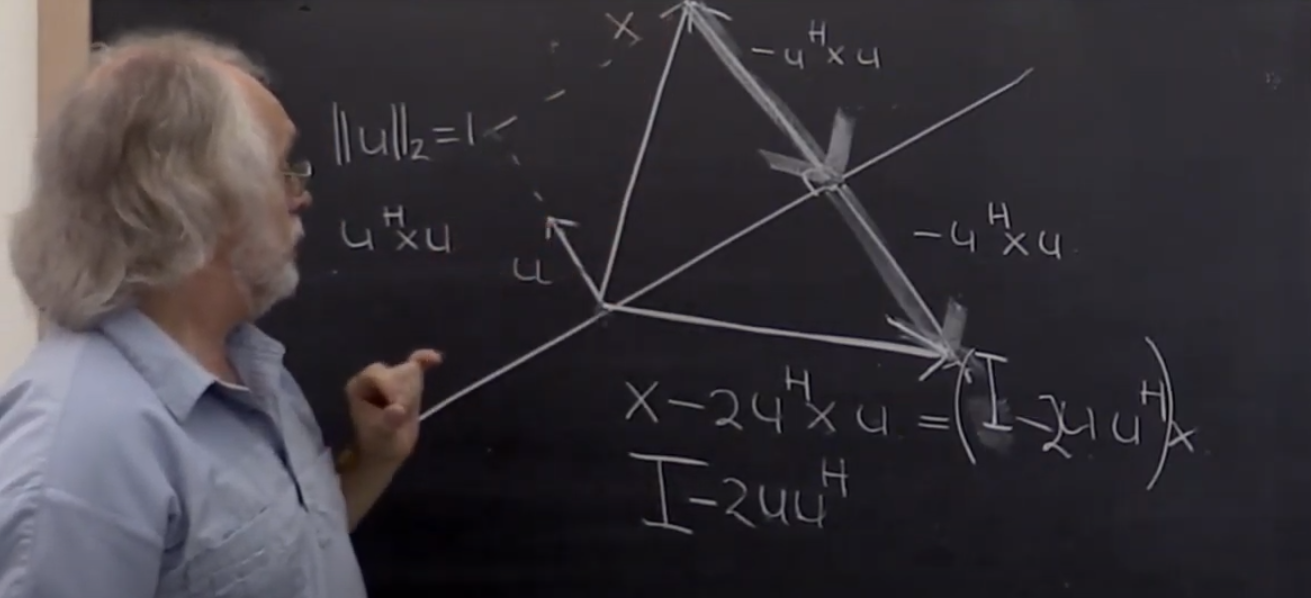 x
-uᴴx u
‖u‖₂=1
uᴴx u
u
-uᴴx u
x-2uᴴx u = (I-2uuᴴ)x
I-2uuᴴ